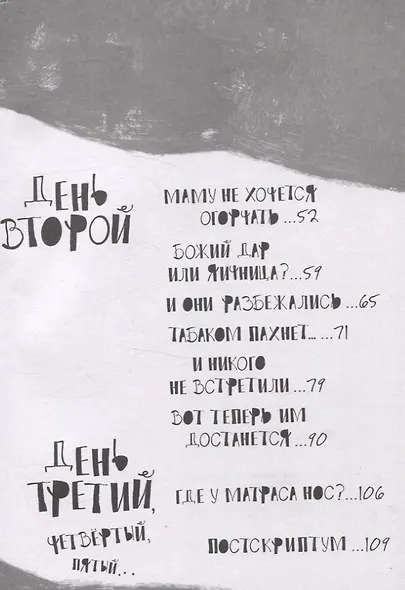 ДЕНЬ
ВТОРОЙ
МАМУ НЕ ХОЧЕТСЯ
ОГОРЧАТЬ...52
БОЖИЙ ДАР
ИЛИ ЯИЧНИЦА?...59
И ОНИ РАЗБЕЖАЛИСЬ...65
ТАБАКОМ ПАХНЕТ... ...71
И НИКОГО
НЕ ВСТРЕТИЛИ...79
ВОТ ТЕПЕРЬ ИМ
ДОСТАНЕТСЯ...90
ДЕНЬ
ТРЕТИЙ,
ЧЕТВЁРТЫЙ,
ПЯТЫЙ...
ГДЕ У МАТРАСА НОС?...106
ПОСТСКРИПТУМ...109